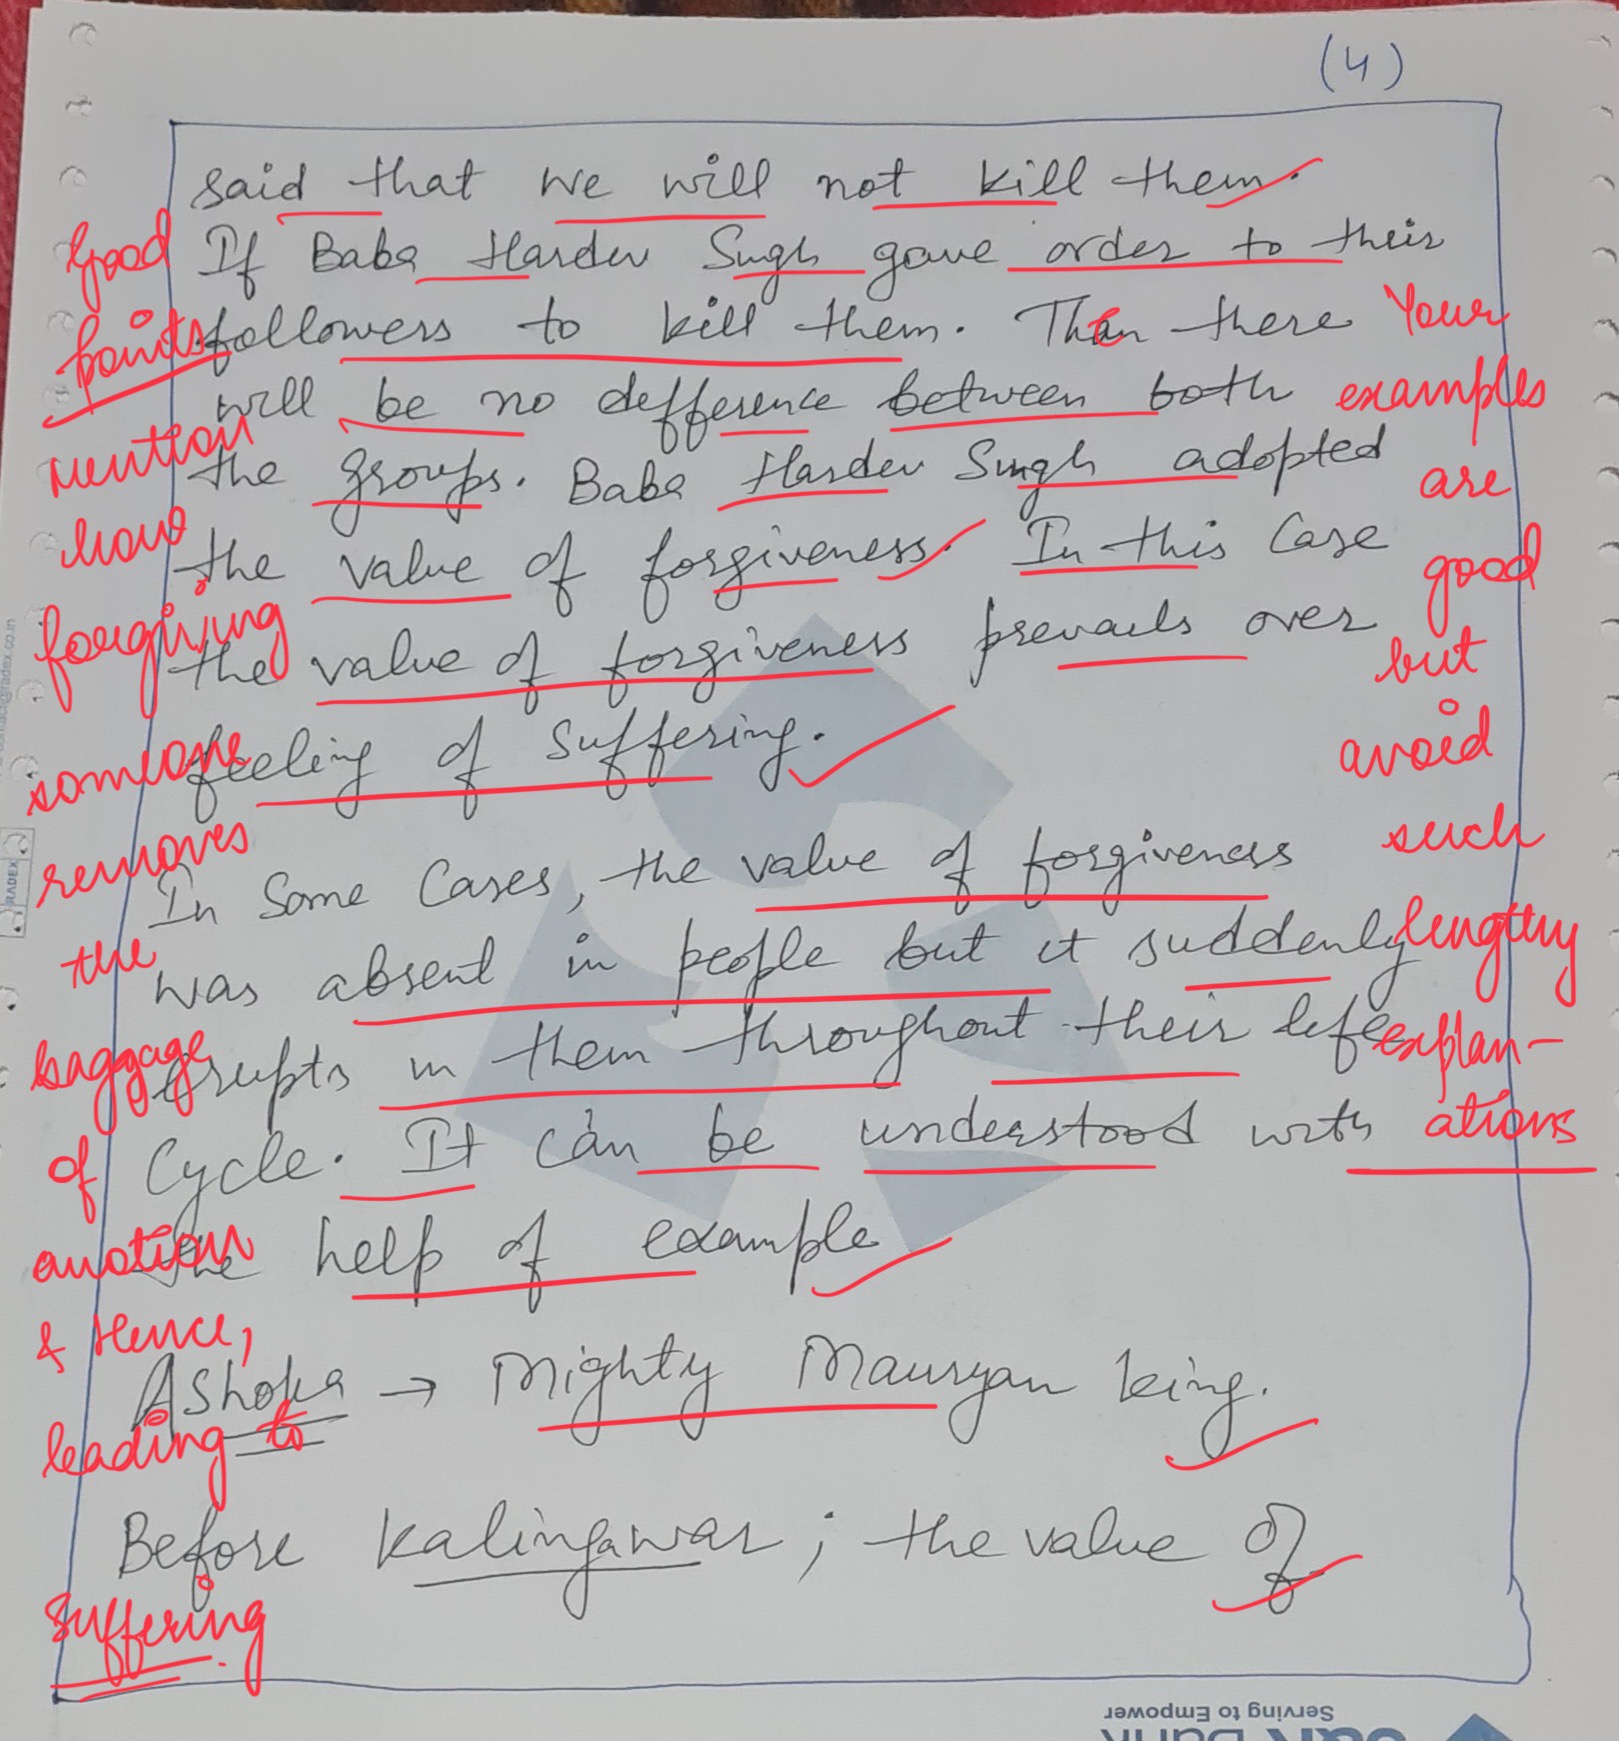 (4)
said that we will not kill them.
If Baba Hardev Singh gave order to their
followers to kill them. Then there
will be no defference between both
the groups. Baba Hardev Singh adopted
the value of forgiveness. In this case
the value of forgiveness prevails over
feeling of suffering.
In Some Cases, the value of forgiveness
was absent in people but it suddenly
erupts in them throughout their life
Cycle. It can be understood with
the help of example
Ashoka → Mighty Mauryan king.
Before kalingawar; the value of
Good
points.
mention
how
forgiving
someone
removes
the
baggage
of
emotion
& Hence,
leading to
suffering.
Your
examples
are
good
but
avoid
such
lengthy
explan-
ations
RADEX
Serving to Empower
J&K Bank